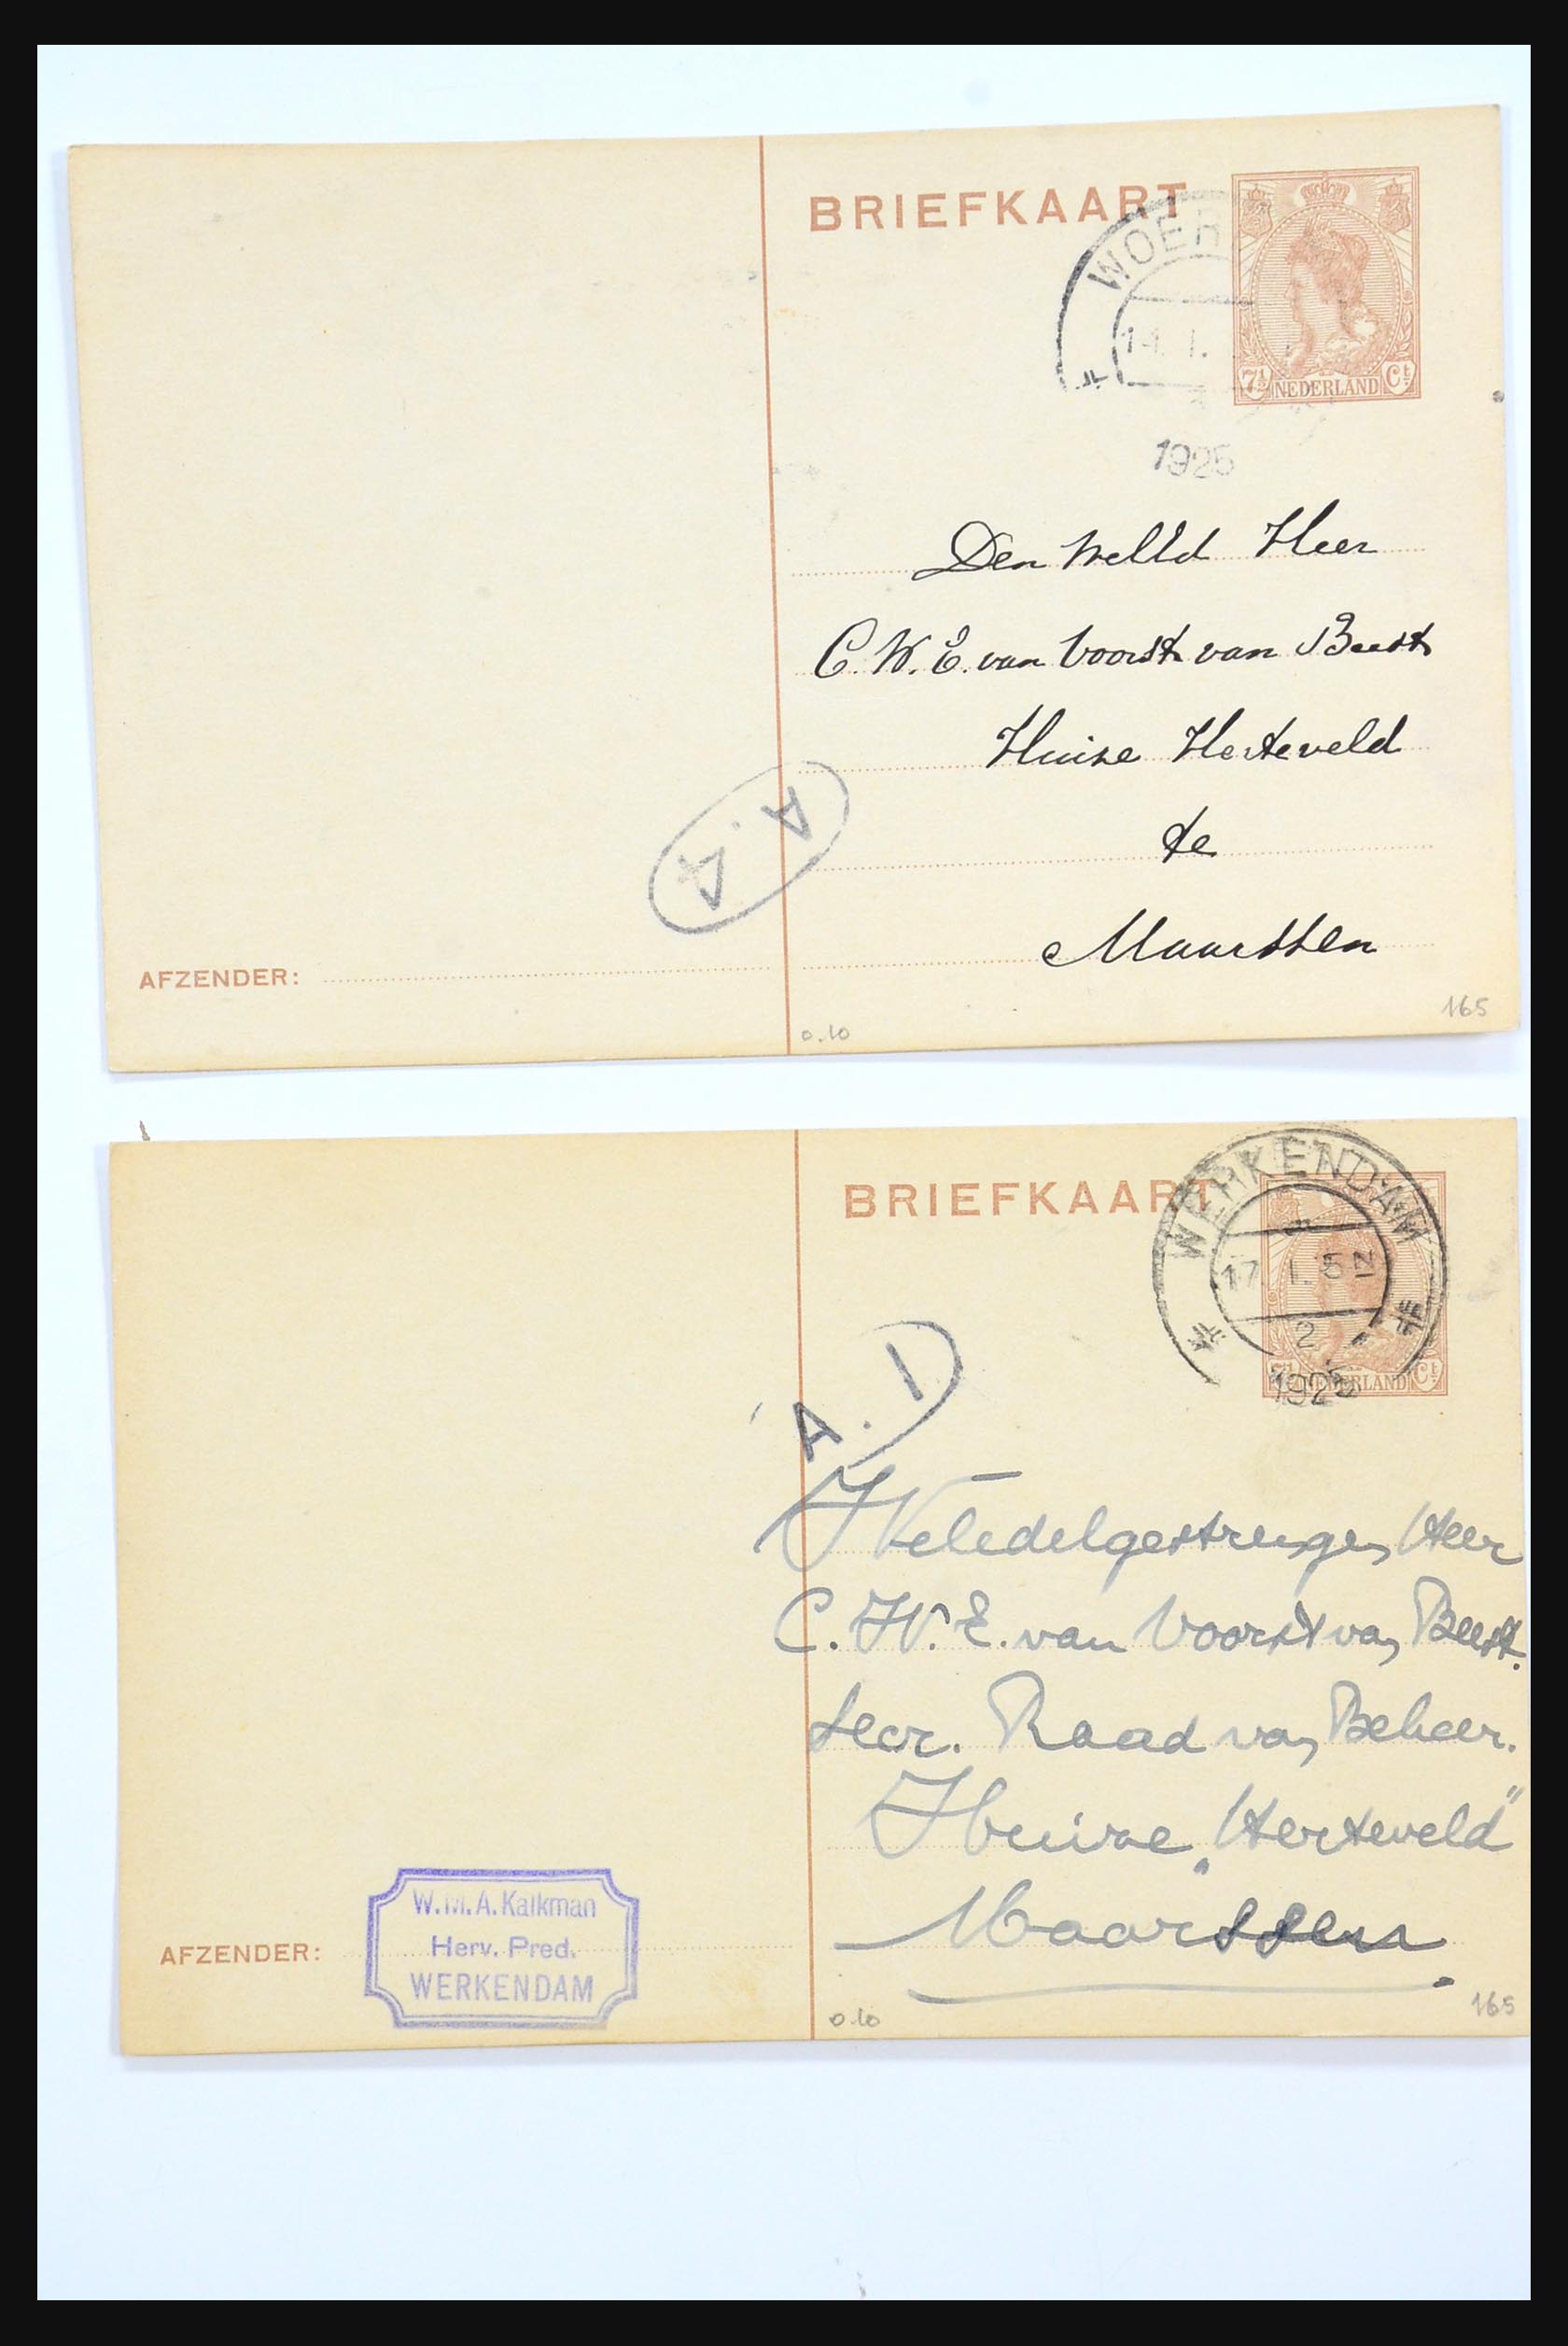 BRIEFKAART
WOER
14. 1.
1925
7½ NEDERLAND Ct
Den WelEd Heer
C. W. E. van Voorst van Beest
Huize Herteveld
te
Maarssen
A.4
AFZENDER:
0.10
165
BRIEFKAART
WERKENDAM
17. 1. 5 N
2
1925
7½ NEDERLAND Ct
A.1
Weledelgestrengen Heer
C. W. E. van Voorst van Beest.
Secr. Raad van Beheer.
Huize „Herteveld"
Maarssen.
W.M.A. Kalkman
Herv. Pred.
WERKENDAM
AFZENDER:
0.10
165